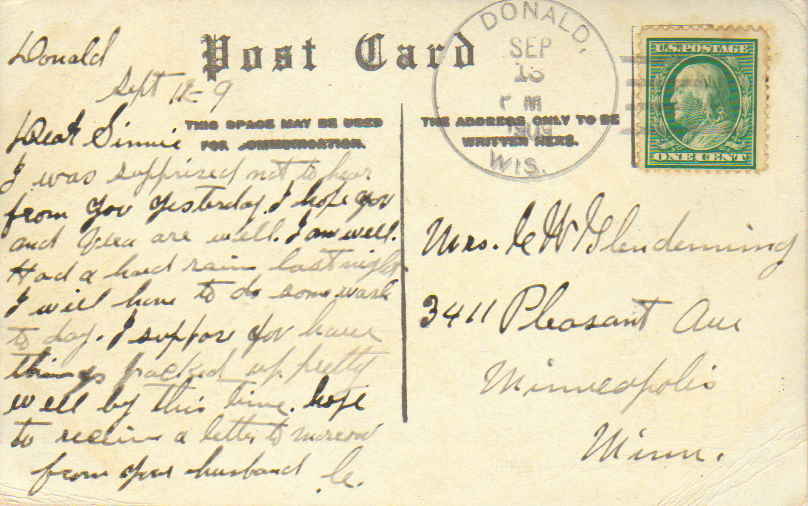 Donald
Sept 12-9
Post Card
DONALD,
SEP
13
PM
1909
WIS.
U.S. POSTAGE
ONE CENT
THIS SPACE MAY BE USED
FOR COMMUNICATION.
THE ADDRESS ONLY TO BE
WRITTEN HERE.
Dear Sinnie
I was supprised not to hear
from you yesterday. I hope you
and Vera are well. I am well.
Had a hard rain last night
I will have to do some wash
to day. I suppos you have
things packed up pretty
well by this time. hope
to recein a letter to morrow
from your husband C.
Mrs. C W Glendenning
3411 Pleasant Ave
Minneapolis
Minn.